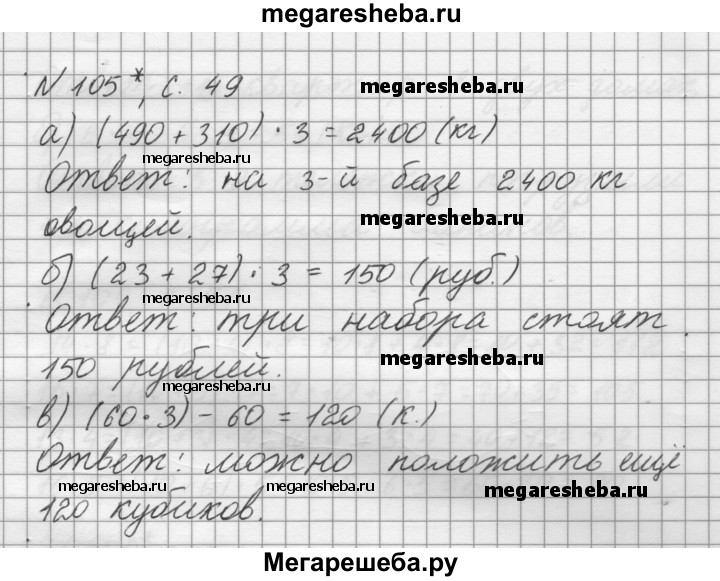 megaresheba.ru
N 105*, с. 49
megaresheba.ru
а) (490 + 310) · 3 = 2400 (кг)
megaresheba.ru
Ответ: на 3-й базе 2400 кг
овощей.
megaresheba.ru
б) (23 + 27) · 3 = 150 (руб.)
megaresheba.ru
Ответ: три набора стоят
150 рублей.
megaresheba.ru
megaresheba.ru
в) (60 · 3) - 60 = 120 (к.)
Ответ: можно положить ещё
megaresheba.ru
megaresheba.ru
120 кубиков.
Мегарешеба.ру